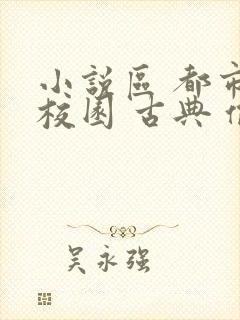 小說區 都市
校園 古典
吴永强